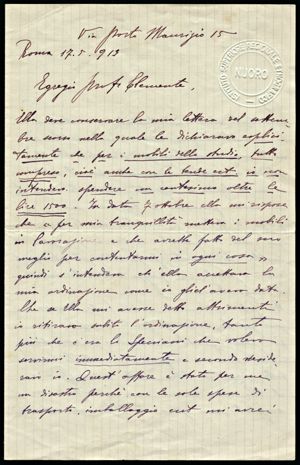 Via Porto Maurizio 15
Roma 17. 5. 913
NUORO
Egregio Prof. Clemente,
Ella deve conservare la mia lettera del settem
bre scorso nella quale le dichiaravo esplici
tamente che per i mobili dello studio, tutto
compreso, cioè anche con le tende ecc. io non
intendevo spendere un centesimo oltre le
lire 1500. In data 7 ottobre ella mi rispose
che per mia tranquillità metteva i mobili
in lavorazione e che avrebbe fatto del suo
meglio per contentarmi in ogni cosa,
quindi s'intendeva ch'ella accettava la
mia ordinazione come io gliel'avevo dato.
Che se ella mi avesse detto altrimenti
io ritiravo subito l'ordinazione, tanto
più che c'era lo che voleva
servirmi immediatamente e secondo i deside
ravo io. Quest'affare è stato per me
un disastro perchè con le sole spese di
trasporto, imballaggio ecc. mi avrei